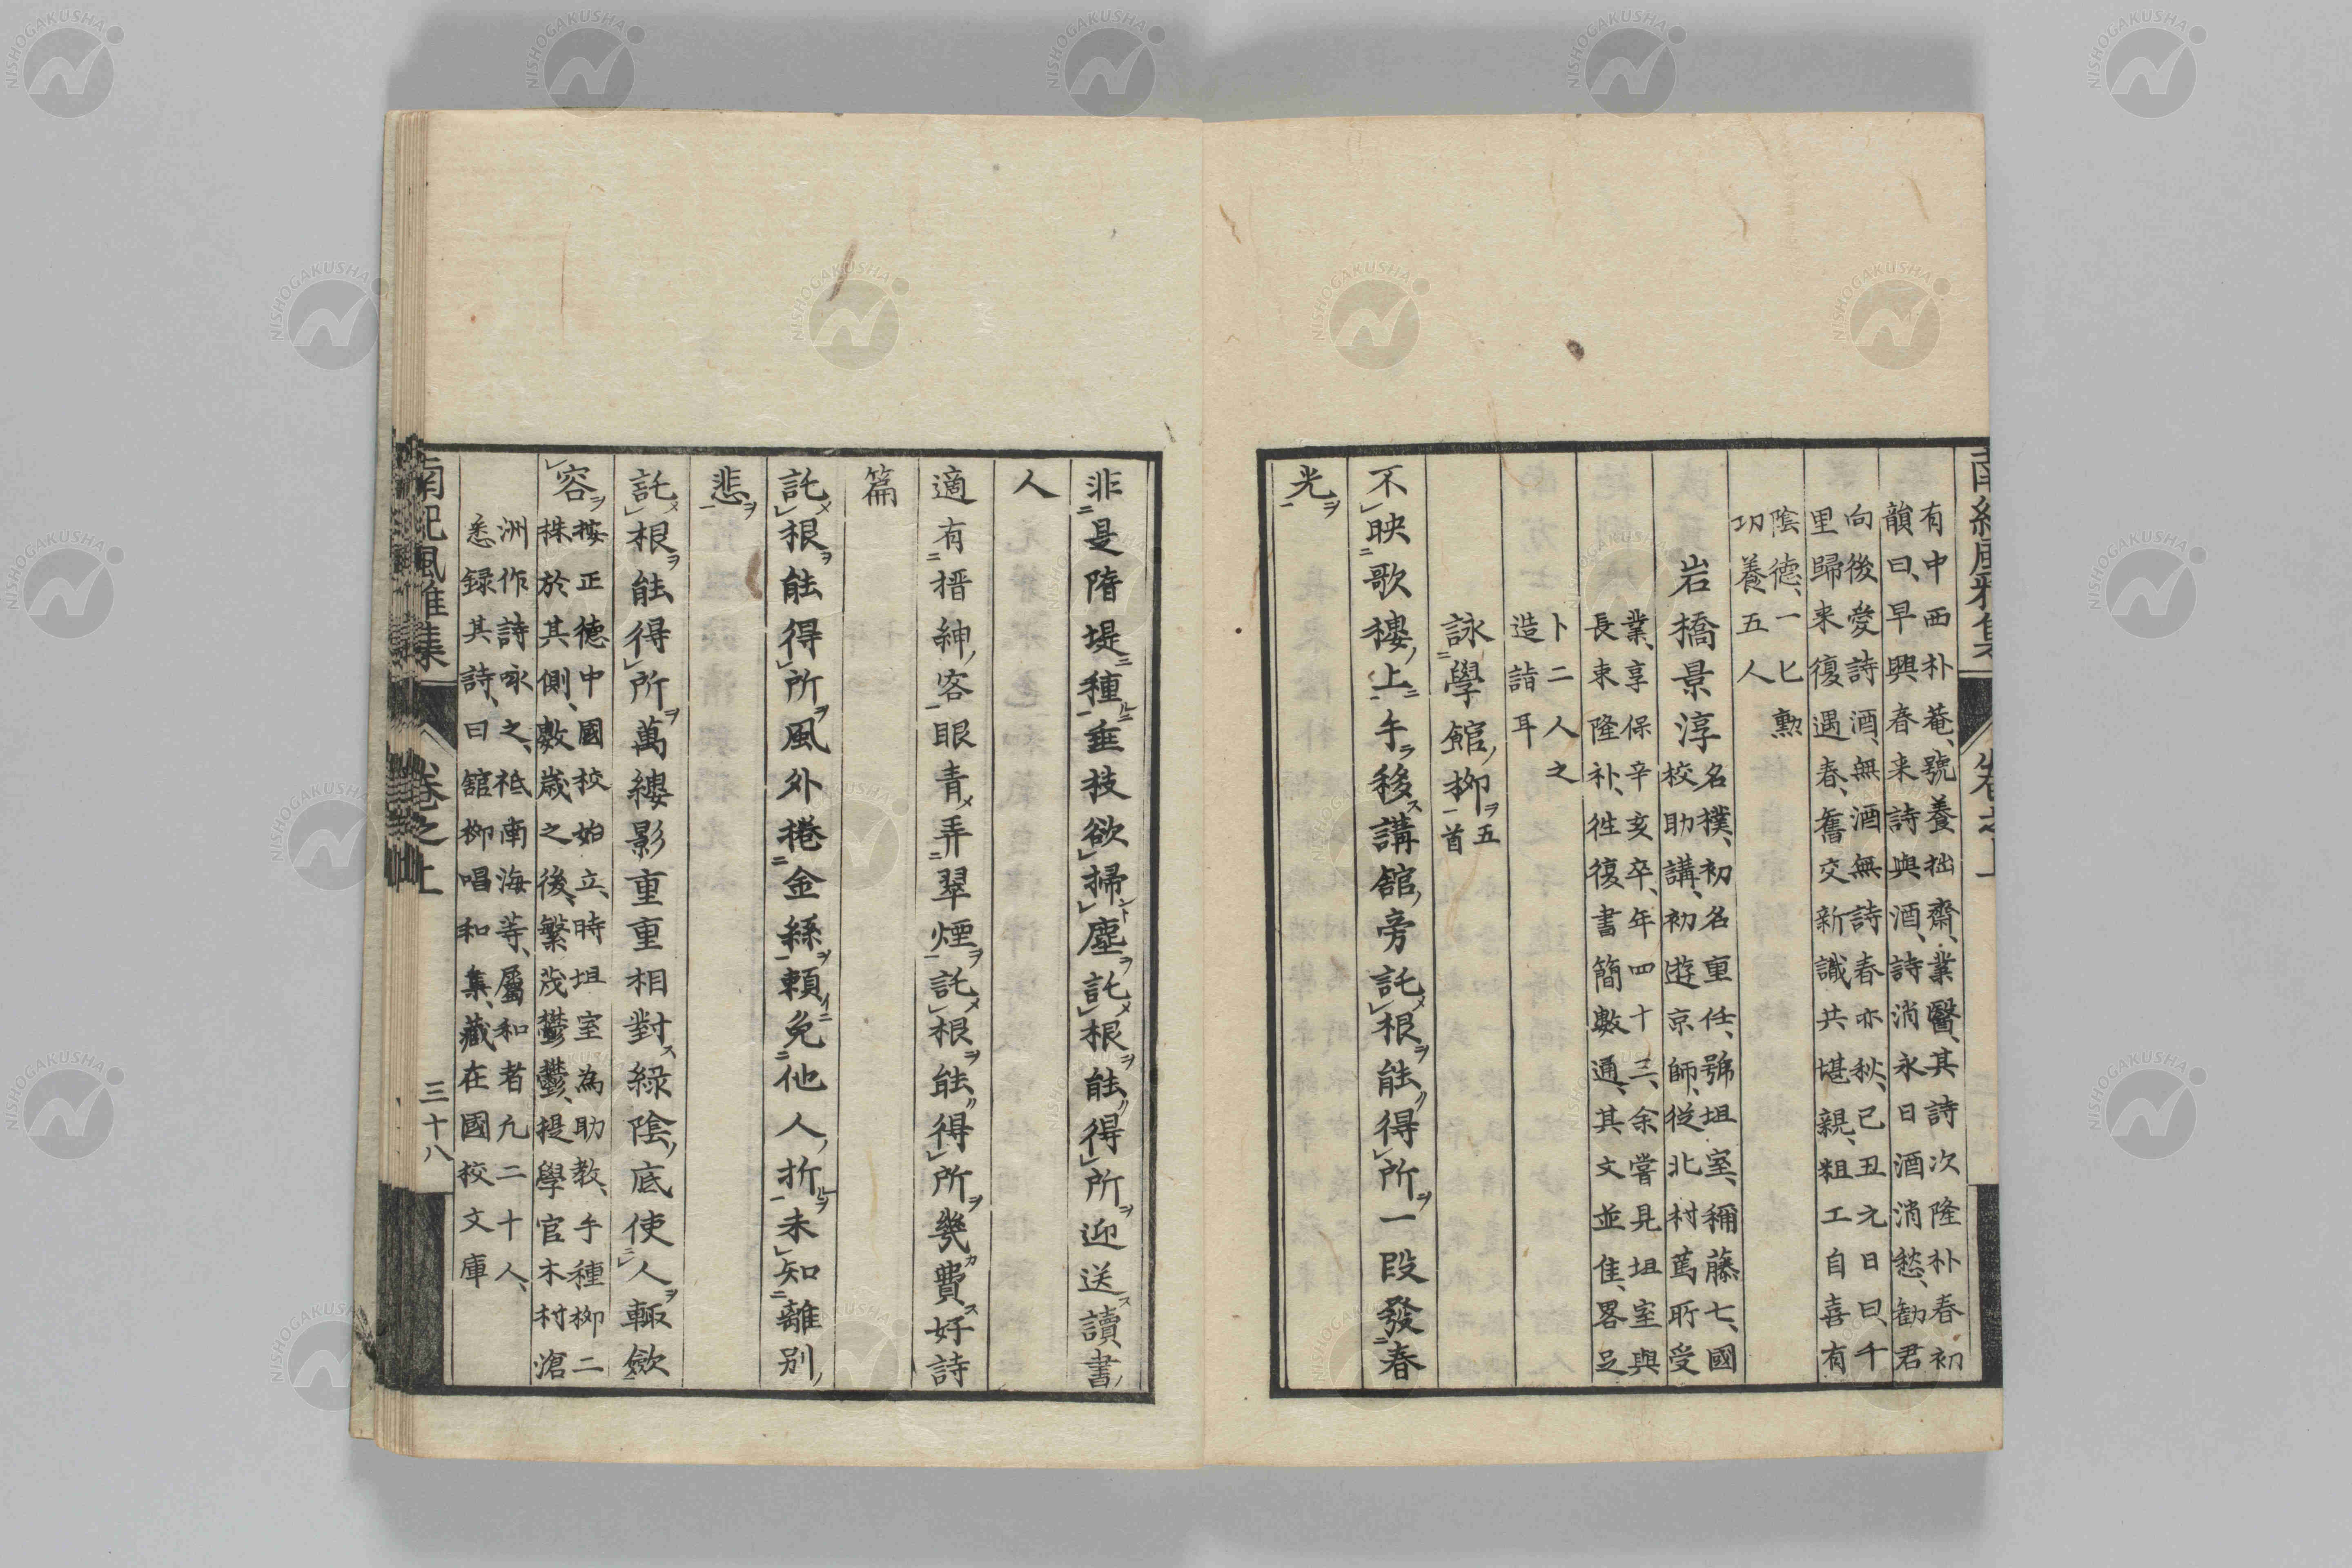 有中西朴菴、號養拙齋、業醫、其詩次隆朴春初
韻曰、早興春来詩與酒、詩消永日酒消愁、勧君
向後愛詩酒、無酒無詩春亦秋、己丑元日曰、千
里歸来復遇春、舊交新識共堪親、粗工自喜有
陰德、一匕勲
功養五人
岩橋景淳
名樸、初名重任、號坦室、稱藤七、國
校助講、初遊京師、従北村篤所受
業、享保辛亥卒、年四十三、余嘗見坦室與
長束隆朴、徃復書簡數通、其文並佳、畧足
卜二人之
造詣耳
詠學館柳五首
不映歌樓上手移講舘旁託根能得所一段發春
光
非是隋堤種垂枝欲掃塵託根能得所迎送讀書
人
適有搢紳客眼青弄翠煙託根能得所幾費好詩
篇
託根能得所風外捲金絲頼免他人折未知離別
悲
託根能得所萬縷影重重相對緑陰底使人輙斂
容
按正德中國校始立、時坦室為助教、手種柳二
株於其側、數歳之後、繁茂鬱鬱、提學官木村滄
洲作詩咏之、祗南海等、屬和者凡二十人、
悉録其詩、曰舘柳唱和集、藏在國校文庫
南紀風雅集
卷之上
三十八
NISHOGAKUSHA